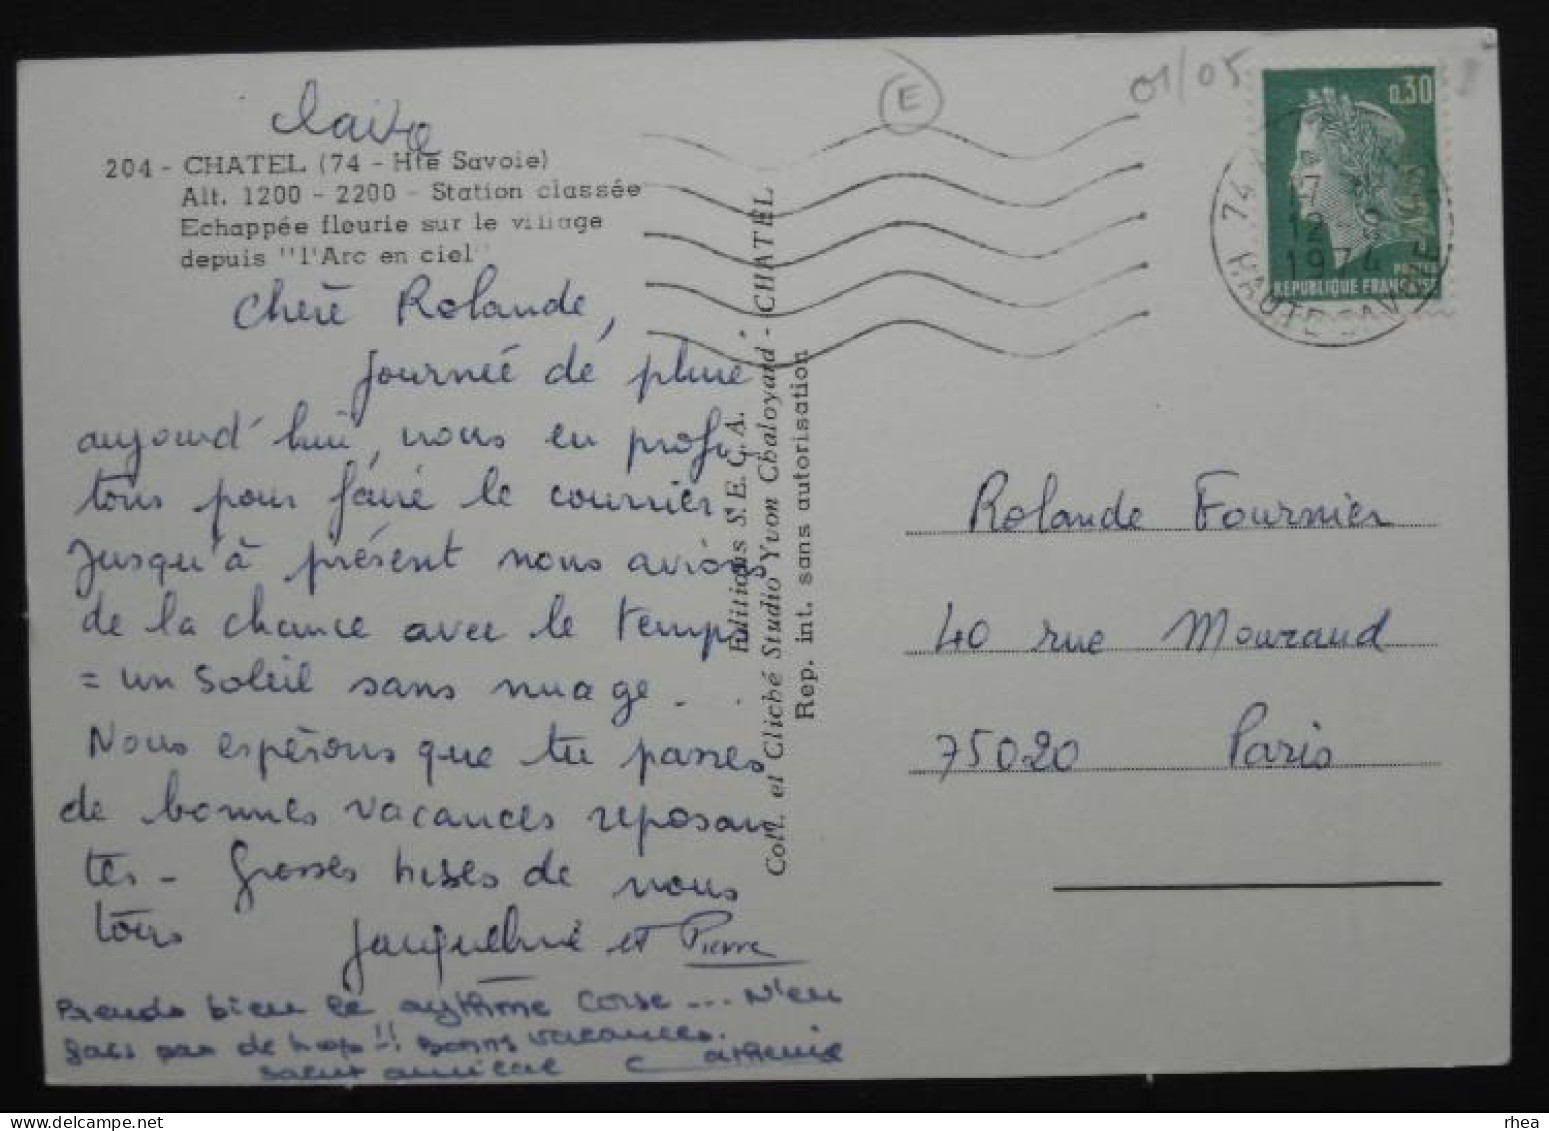 Claire
204 - CHATEL (74 - Hte Savoie)
Alt. 1200 - 2200 - Station classée
Echappée fleurie sur le village
depuis "l'Arc en ciel"
Chère Rolande,
Journée de pluie
aujourd'hui, nous en profi
tons pour faire le courrier
Jusqu'à présent nous avions
de la chance avec le temps
= un soleil sans nuage -
Nous espérons que tu passes
de bonnes vacances reposan
tes - Grosses bises de nous
tous Jacqueline et Pierre
Prends bien le rythme Corse ... N'en
fais pas de trop!! Bonnes vacances.
Salut amical
Editions S.E.G.A.
Coll. et Cliché Studio Yvon Chaloyard - CHATEL
Rep. int. sans autorisation
E
01/05
0,30
POSTES
REPUBLIQUE FRANÇAISE
74
12
1974
HAUTE-SAVOIE
Rolande Fournier
40 rue Mouraud
75020 Paris
rhea